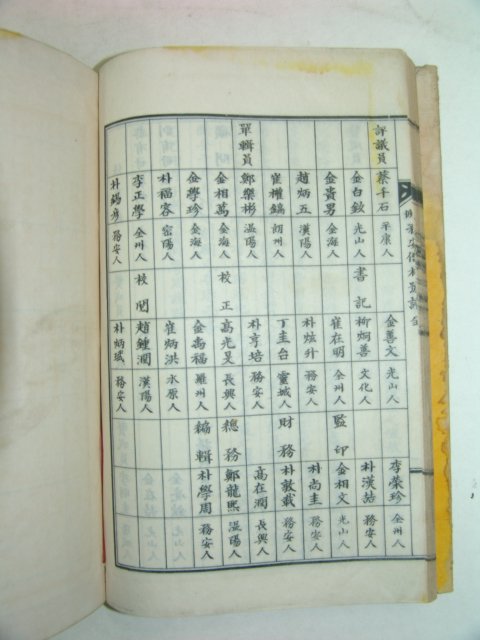 評議員 蔡千石 平康人
金白欽 光山人
金貴男 金海人
趙炳五 漢陽人
崔權鎬 朗州人
單輯員 鄭樂彬 溫陽人
金相萬 金海人
金學珍 金海人
朴福容 密陽人
李正學 全州人
朴錫彦 務安人
金善文 光山人
書記 柳炯善 文化人
崔在明 全州人
朴炫升 務安人
丁圭台 靈城人
朴亨培 務安人
校正 高光旻 長興人
金禼福 羅州人
崔炳洪 水原人
校閱 趙鍾潤 漢陽人
朴炳彧 務安人
李榮珍 全州人
朴漢喆 務安人
監印 金相文 光山人
朴尚圭 務安人
財務 朴敦載 務安人
高在潤 長興人
總務 鄭龍熙 溫陽人
編輯 朴學周 務安人